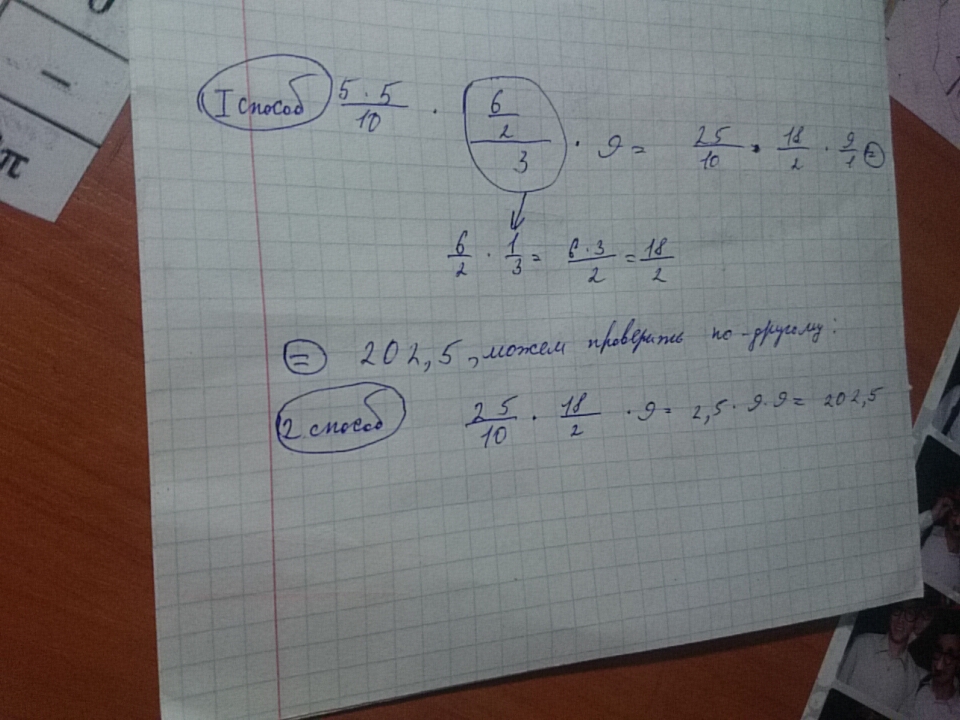 I способ (5 · 5)/10 · (6/2)/3 · 9 = 25/10 · 18/2 · 9/1 =
6/2 · 1/3 = (6 · 3)/2 = 18/2
= 202,5, можем проверить по-другому:
2 способ 25/10 · 18/2 · 9 = 2,5 · 9 · 9 = 202,5
π